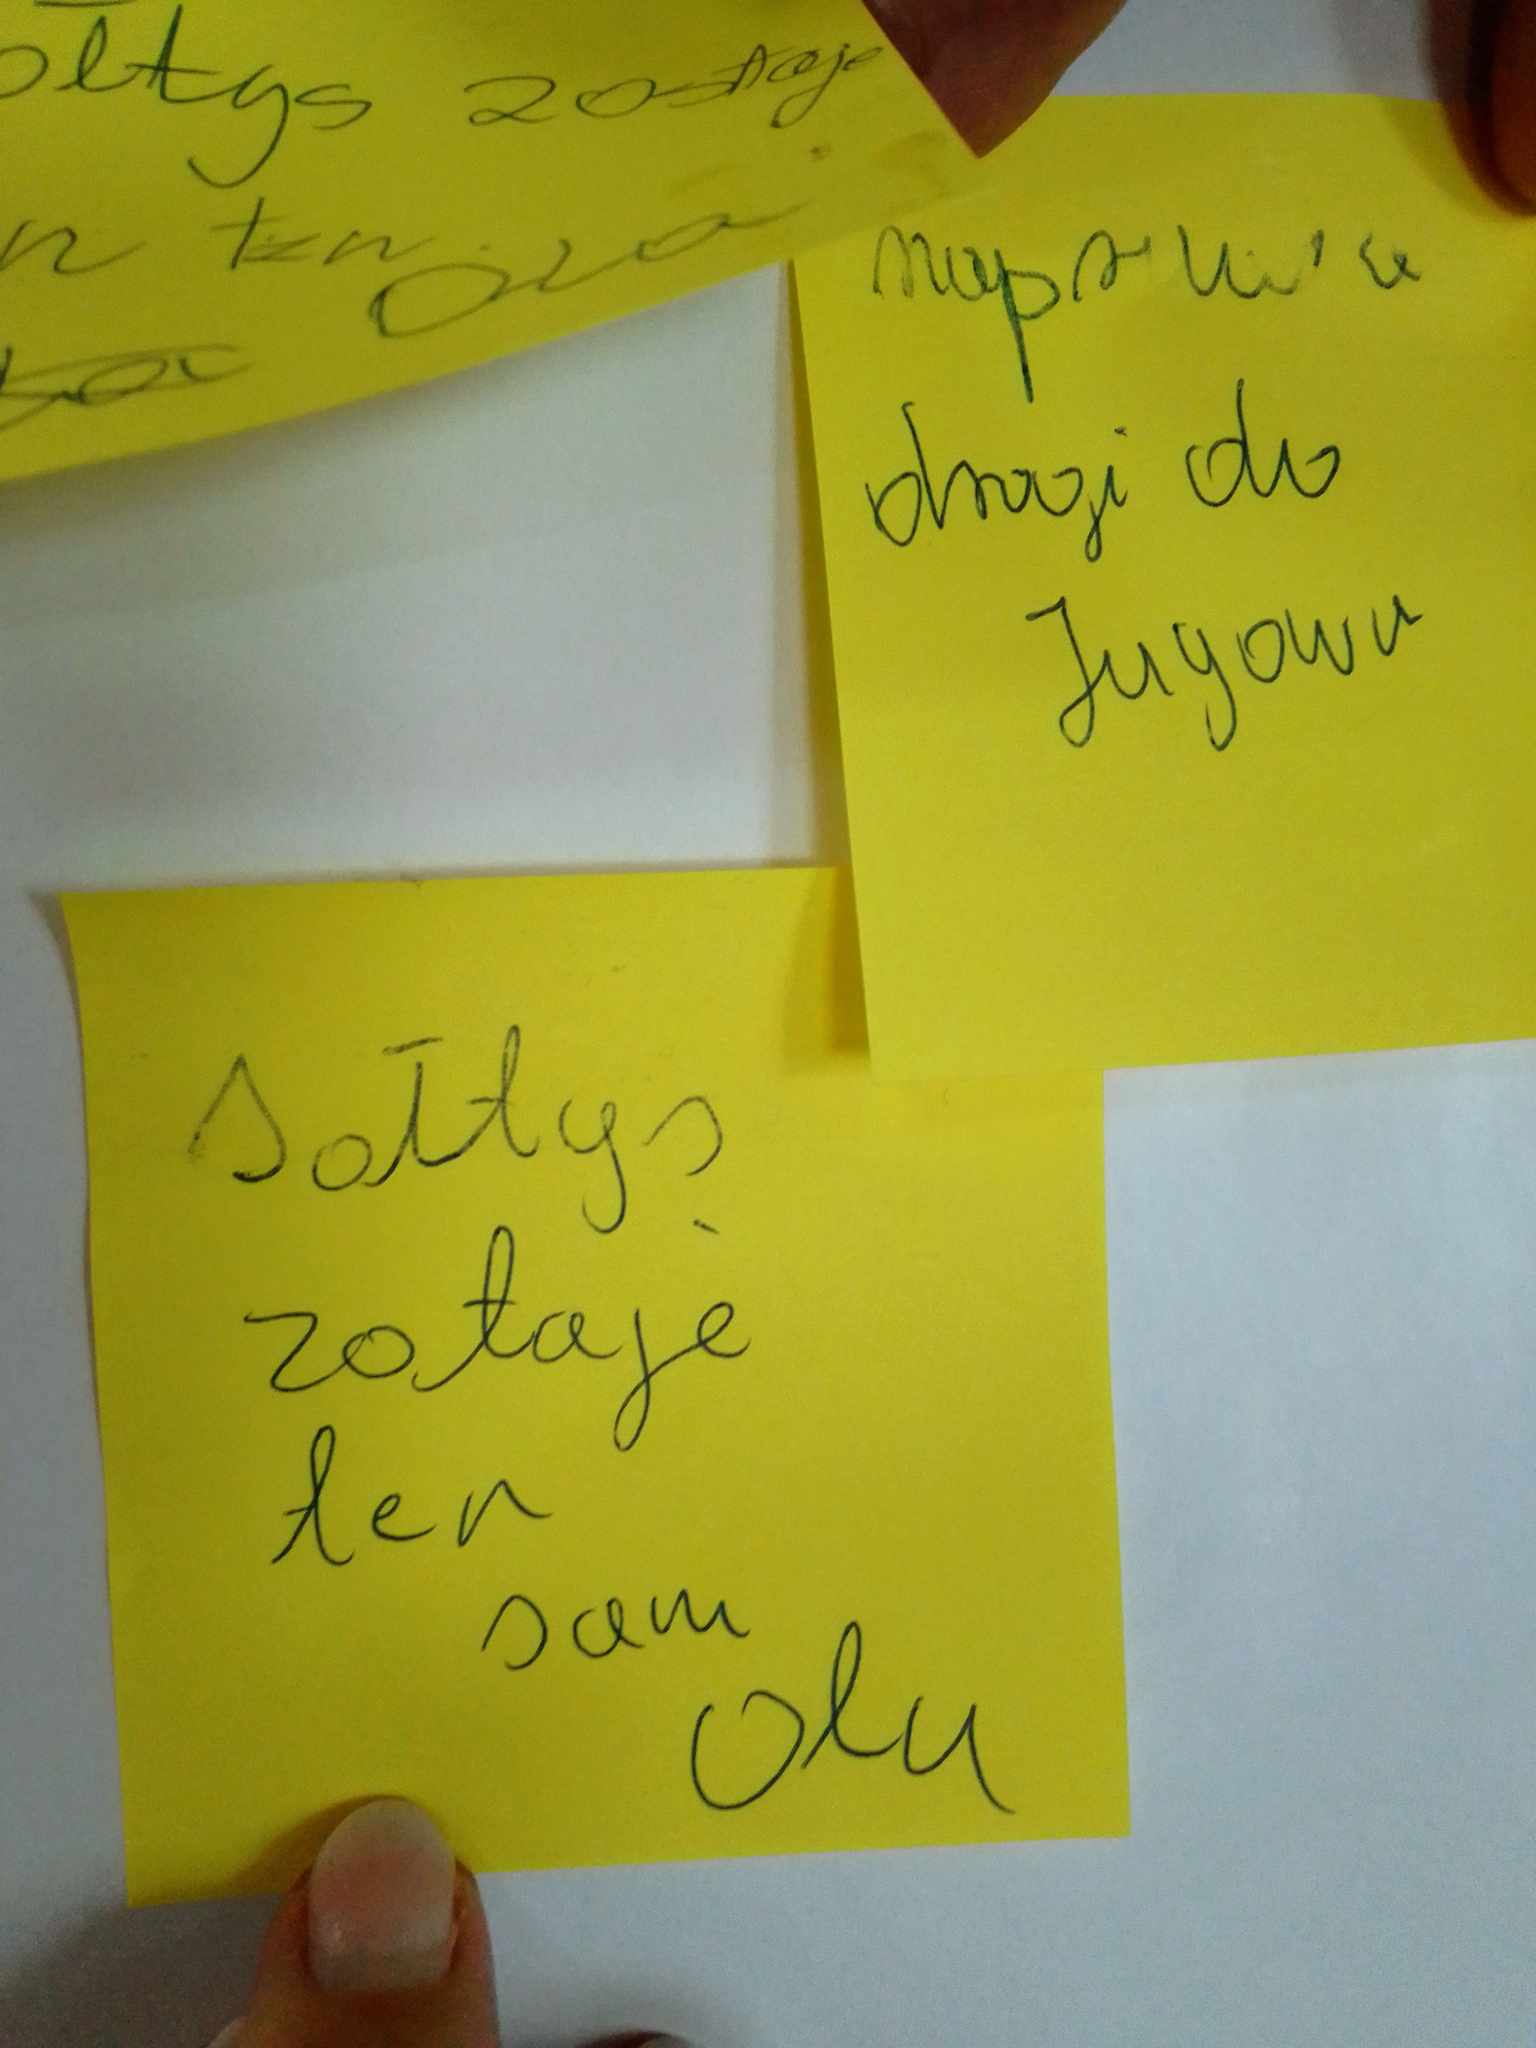 ołtys zostaje
n ten
naprawic
drogi do
Jugowa
Sołtys
zotaje
ten
sam
Olu